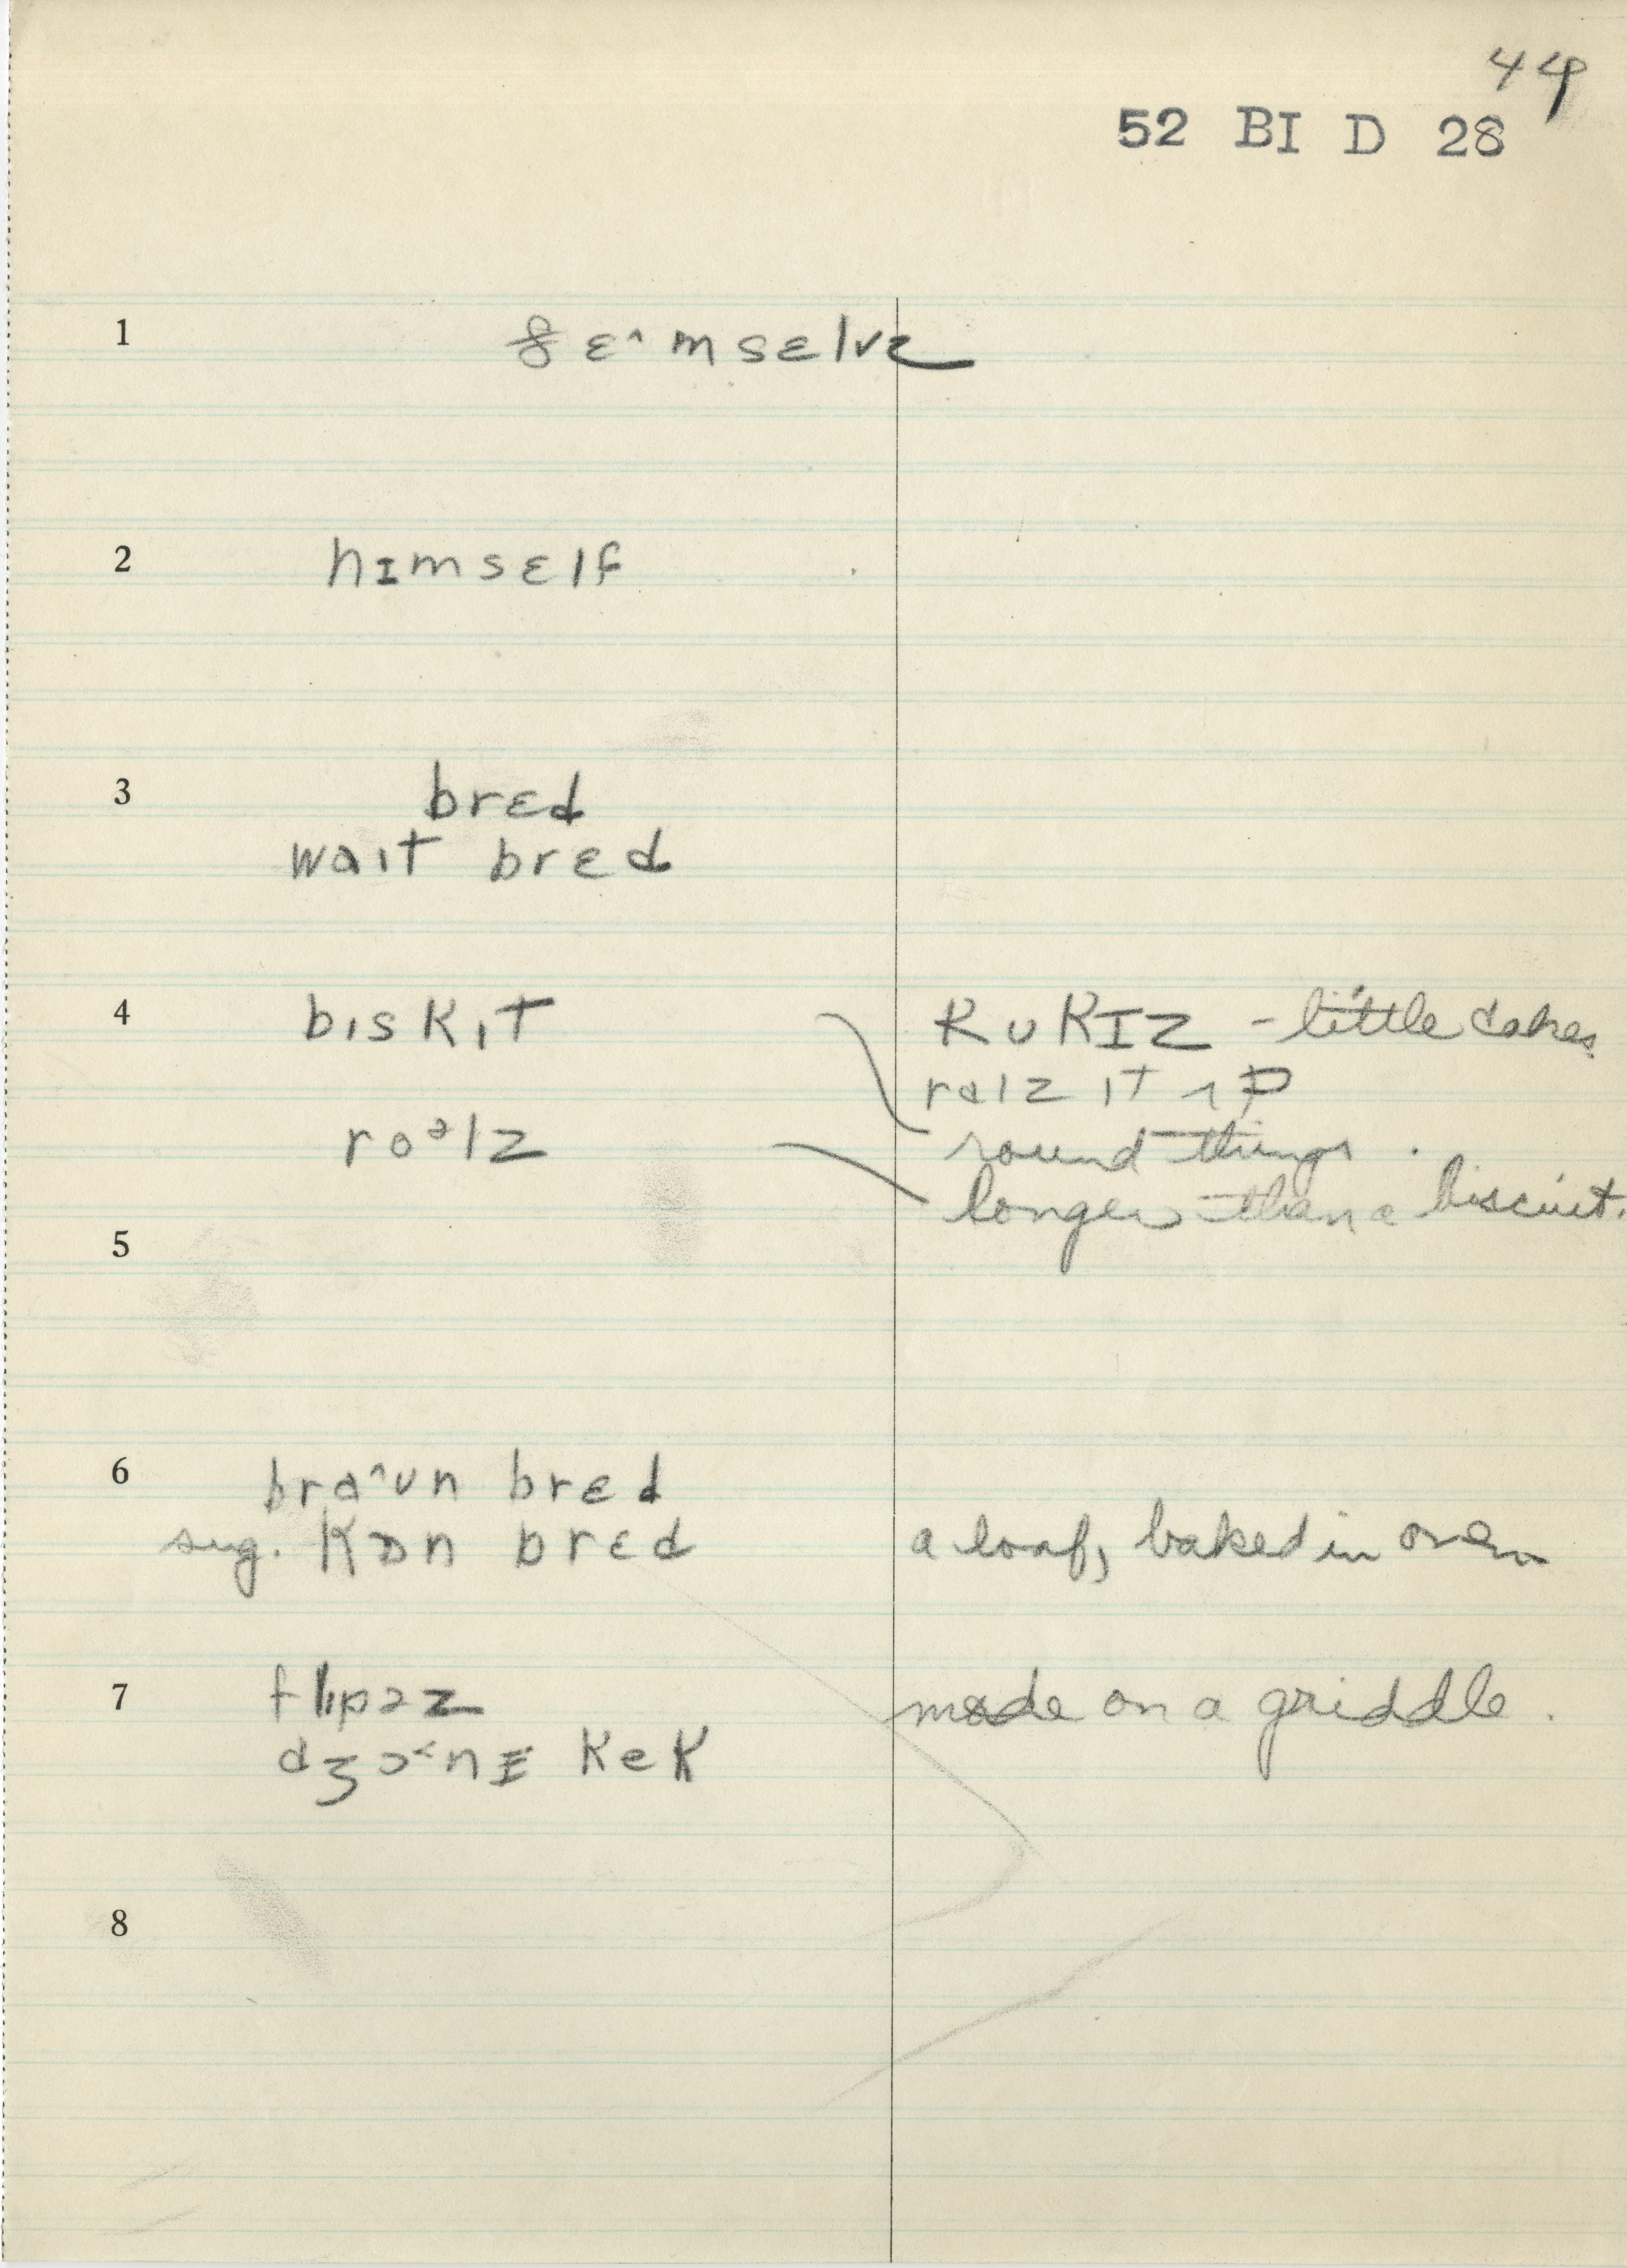 44
52 BI D 28
1 ðɛ˄msɛlvz
2 hɪmsɛlf
3 brɛd
waɪt brɛd
4 bɪskɪt kʊkɪz - little cakes
rəlz ɪt ʌp
roᵊlz round things.
longer than a biscuit.
5
6 bra˄ʊn brɛd
sug. kɒn brɛd a loaf, baked in oven
7 flɪpəz made on a griddle.
dʒɔ˂nɪ kek
8